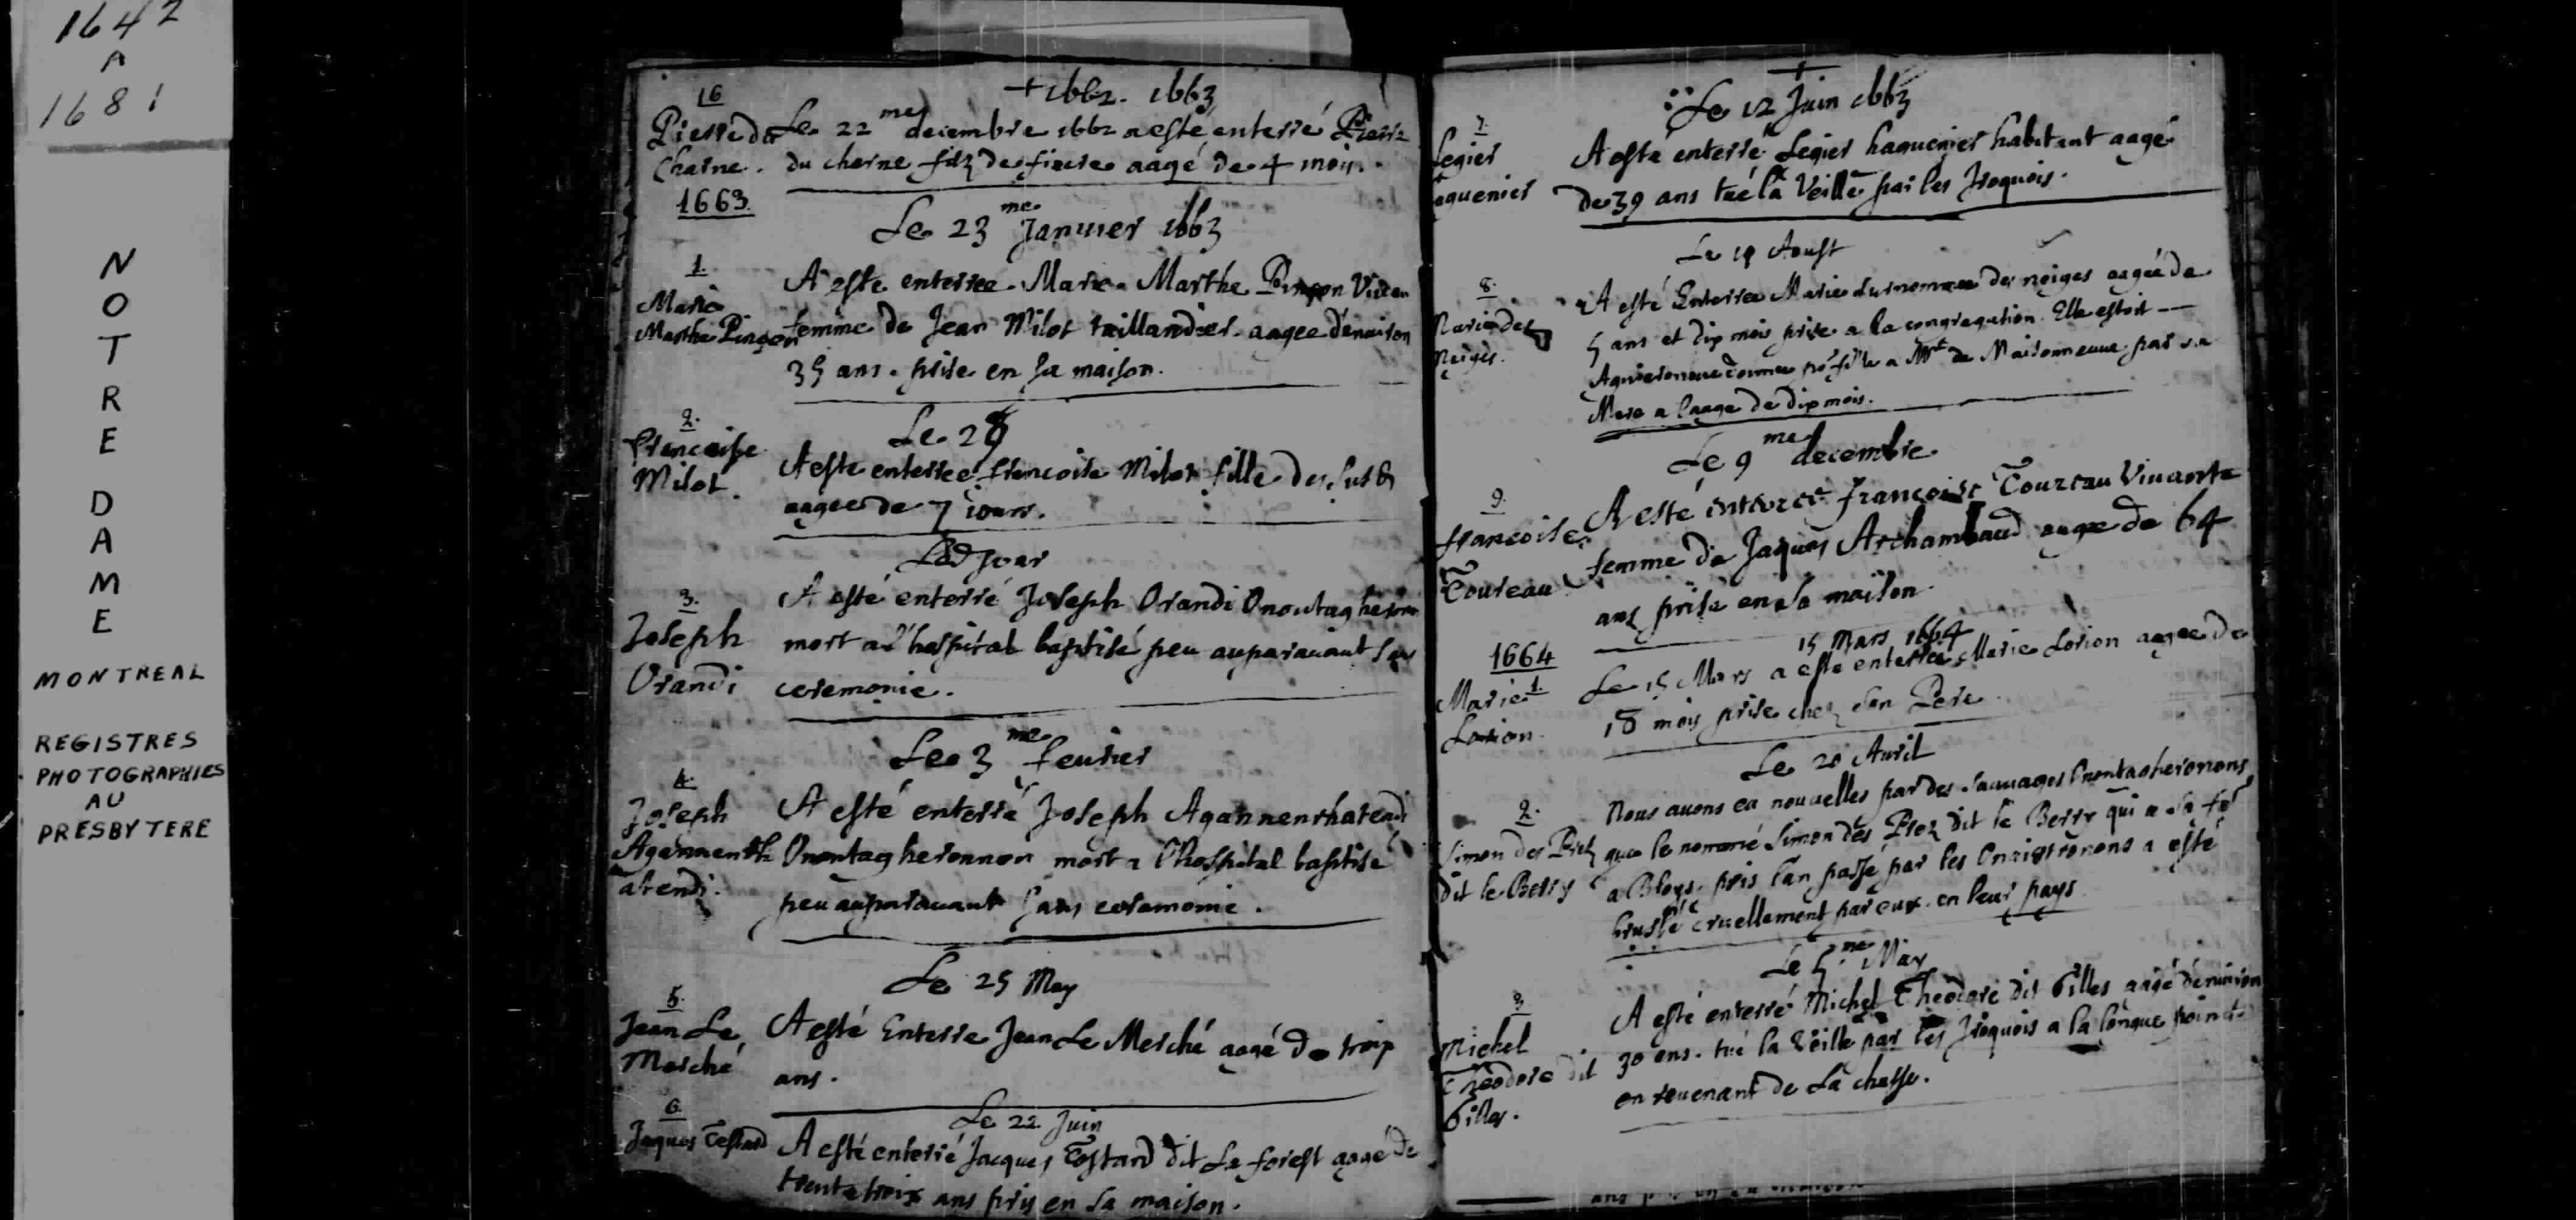 1642
A
1681
NOTRE DAME
MONTREAL
REGISTRES
PHOTOGRAPHIES
AU
PRESBYTERE
+ 1662. 1663
16
Pierre du
Charne.
Le 22me decembre 1662 a esté enterré Pierre
du cherne filz de fiacre aagé de 4 mois.
1663.
Le 23me Januier 1663
1.
Marie
Marthe Pinson
A este enterree Marie Marthe Pinson
femme de Jean Milot taillandier aagee d'enuiron
35 ans. prise en sa maison.
2.
francoise
Milot.
Le 28
A este enterree francoise Milot fille du susd
aagee de 7 iours.
Led Jour
3.
Joseph
Orandi
A esté enterré Joseph Orandi
mort a l'hospital baptisé peu auparauant sans
ceremonie.
Le 3me feurier
4.
Joseph
Agannenrh
atendi.
A esté enterré Joseph Agannenrhatendi
Onontagheronnon mort a l'hospital baptisé
peu auparauant sans ceremonie.
Le 25 May
5.
Jean Le
Merché
A esté Enterré Jean Le Merché aagé de trois
ans.
Le 22 Juin
6.
Jaques Testard
A esté enterré Jacques Testard dit La forest aagé de
trente trois ans pris en sa maison.
+
Le 12 Juin 1663
7.
Legier
aguenier
A esté enterré Legier haguenier habitant aagé
de 39 ans tué la Veille par les Iroquois.
Le 19 Aoust
8.
Marie des
Neiges.
A esté Enterree Marie surnommee des neiges aagée de
5 ans et dix mois prise a la congregation. Elle estoit
donnee pr fille a Mr de Maisonneuue par sa
Mere a l'aage de dix mois.
Le 9me decembre
9.
francoise
Toureau
A esté enterree françoise Toureau Viuante
femme de Jaques Archambaud aagee de 64
ans prise en sa maison.
15 Mars 1664
1664
1.
Marie
Lorion.
Le 15 Mars a esté enterree Marie Lorion aagee de
18 mois prise chez son Pere
Le 20 Auril
2.
Simon des Prez
dit le Berry
Nous auons eu nouuelles par des sauuages Onontagheronons
que le nommé Simon des Prez dit le Berry qui a sa fe
a Bloys. pris l'an passé par les a esté
bruslé cruellement par eux en leur pays
Le 5me May
3.
Michel
Theodore dit
Gilles.
A esté enterré Michel Theodore dit Gilles aagé d'enuiron
30 ans. tué la Veille par les Iroquois a la longue pointe
en reuenant de La chasse.